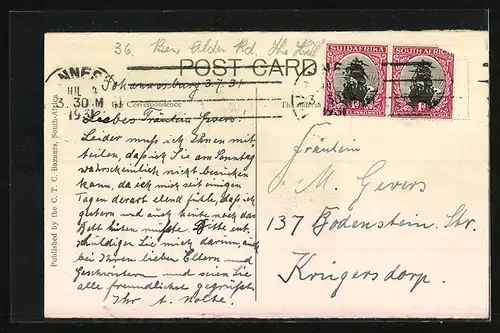 36. Ben Alder Rd. The Hill
SUIDAFRIKA SOUTH AFRICA
POST CARD
NNES
JUL 3
3.30 M
193
Johannesburg 3.7.31
Correspondence
The address
1D 1D
Liebes Fräulein Gevers!
Leider muß ich Ihnen mit-
teilen, daß ich Sie am Sonntag
wahrscheinlich nicht besuchen
kann, da ich mich seit einigen
Tagen derart elend fühle, daß ich
gestern und auch heute noch das
Bett hüten mußte. Bitte ent-
schuldigen Sie mich darum auch
bei Ihren lieben Eltern und
Geschwistern und seien Sie
alle freundlichst gegrüßt.
Ihr t. Nolte.
Fräulein
M. Gevers
137 Bodenstein Str.
Krügersdorp.
Published by the C. T. C. Bazaars, South-Africa.